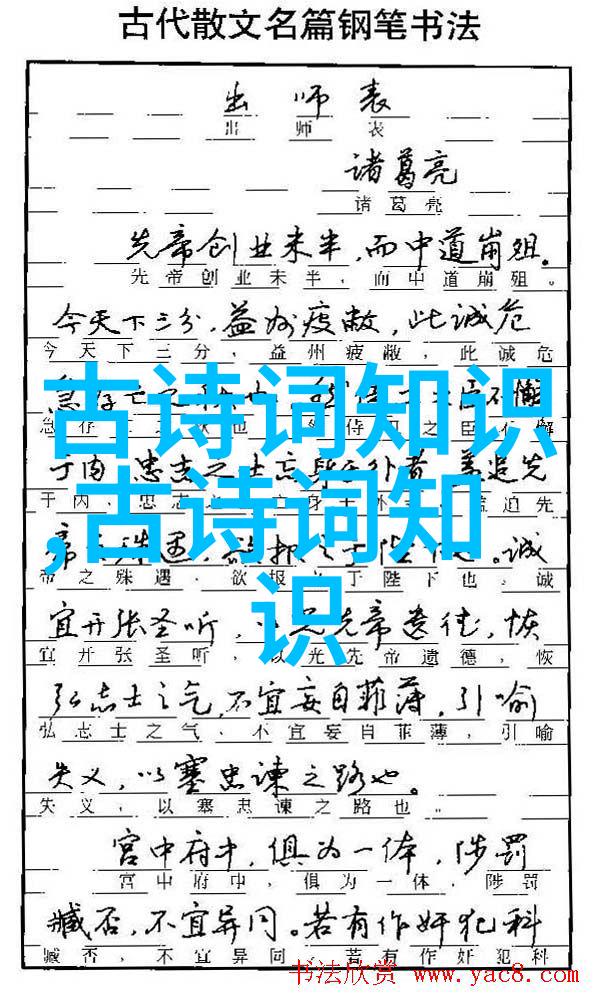 古代散文名篇钢笔书法
出师表
出师表
诸葛亮
诸葛亮
先帝创业未半,而中道崩殂。
先帝创业未半,而中道崩殂。
今天下三分,益州疲敝,此诚危
今天下三分,益州疲敝,此诚危
急存亡之 也, 臣不懈
急存 也, 侍 之臣 懈
古诗词知识
于内,忠志之士忘身于外者,盖追先
于内,忠志 身 追先
,古诗词知
帝 殊遇,欲报 于陛 。诚
帝之殊遇,欲报 于陛下也。诚
识
宜开张圣听, 光先帝遗德,恢
宜开张圣听,以光先帝遗德,恢
弘志士之气,不宜妄自菲薄,引喻
弘志士之气,不宜妄自菲薄,引喻
失义,以塞忠谏之路也。
失义,以塞忠谏之路也。
宫中府中,俱为一体,陟罚
宫中府中,俱为一体,陟罚
臧否,不宜异同。若有作奸犯科
臧否,不宜异同。若有作奸犯科
书法欣赏 www.yac8.com